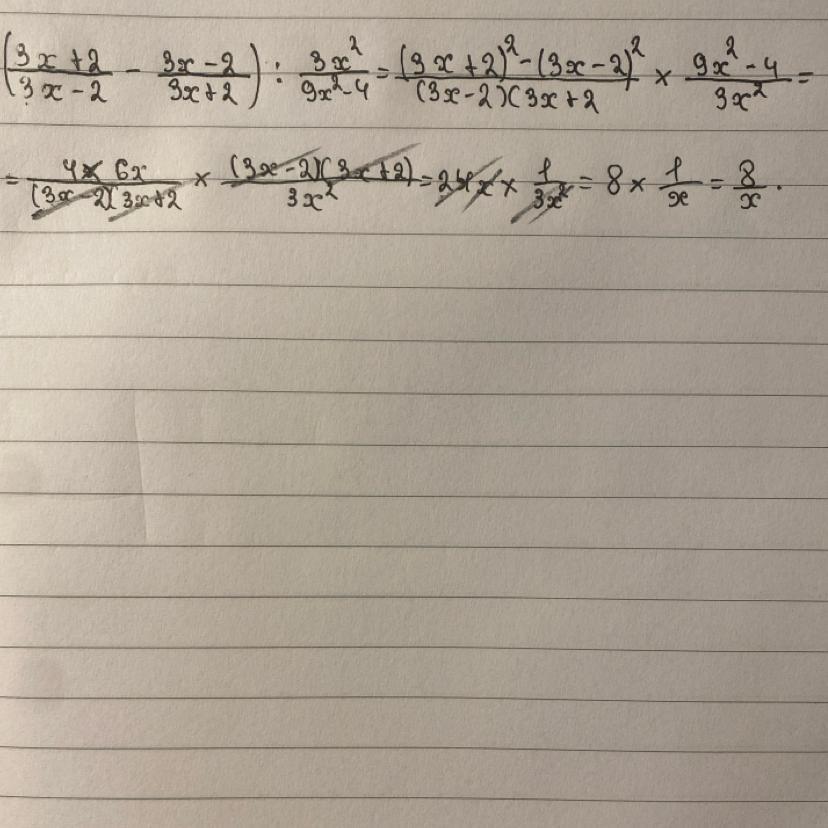 (3x+2/3x-2 - 3x-2/3x+2) : 3x²/9x²-4 = (3x+2)²-(3x-2)²/(3x-2)(3x+2 × 9x²-4/3x² =
= 4×6x/(3x-2)(3x+2 × (3x-2)(3x+2)/3x² = 24x × 1/3x² = 8 × 1/x = 8/x.